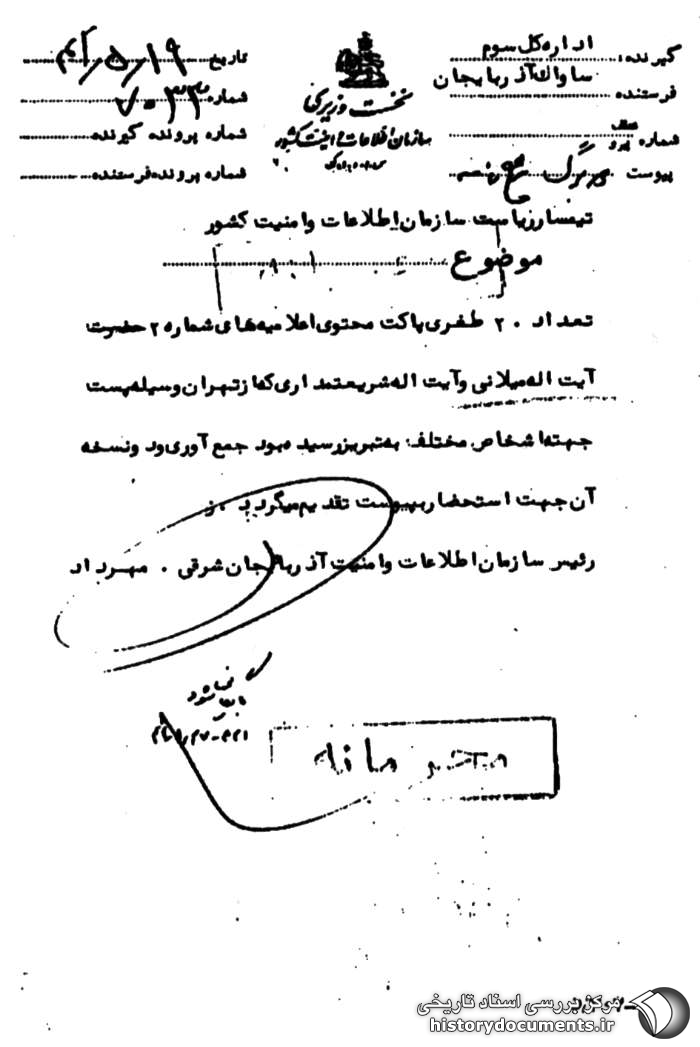 گیرنده: اداره کل سوم
فرستنده ساواک آذربایجان
شماره
پیوست
نخست وزیری
سازمان اطلاعات و امنیت کشور
س.ا.و.ا.ک
تاریخ ۱۹/۵/
شماره
شماره پرونده گیرنده
شماره پرونده فرستنده
تیمسار ریاست سازمان اطلاعات و امنیت کشور
موضوع
تعداد ۲۰ طغری پاکت محتوی اعلامیه های شماره ۲ حضرت
آیت اله میلانی و آیت اله شریعتمداری که از تهران وسیله پست
جهت اشخاص مختلف به تبریز رسیده بود جمع آوری و دو نسخه
آن جهت استحضار به پیوست تقدیم میگردد . ز
رئیس سازمان اطلاعات و امنیت آذربایجان شرقی . مهرداد
محرمانه
مرکز بررسی اسناد تاریخی
historydocuments.ir